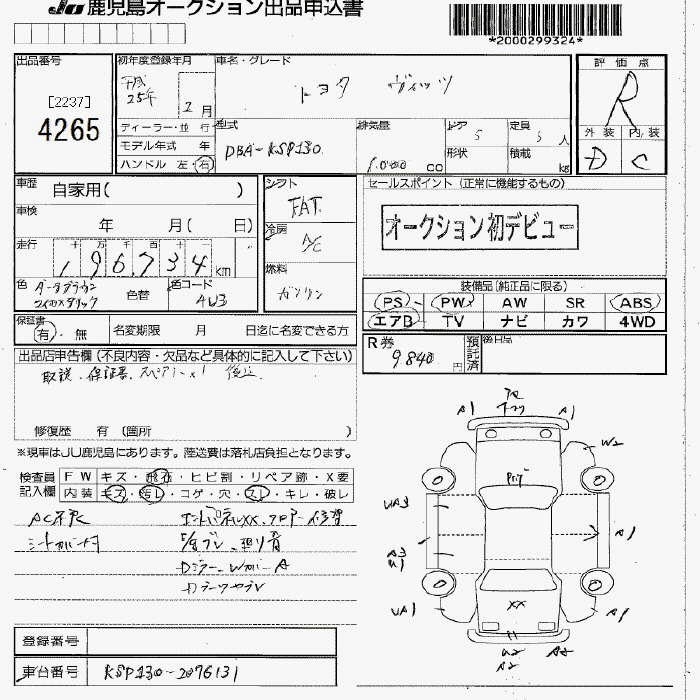 JU 鹿児島オークション出品申込書
*2000299324*
出品番号
[2237]
4265
初年度登録年月
平成
25年 2月
車名・グレード
トヨタ ヴィッツ
評価点
R
外装 内装
D C
ディーラー・並行
モデル年式 年
ハンドル 左・右
型式
DBA-KSP130
排気量
1.000 cc
ドア 5
形状
定員 5人
積載 kg
車歴 自家用( )
車検 年 月( 日)
走行 十万千百十一
196734 km
色 ダークブラウン
マイカメタリック
色替
色コード
4W3
シフト
FAT
冷房
A/C
燃料
ガソリン
セールスポイント (正常に機能するもの)
オークション初デビュー
装備品(純正品に限る)
PS PW AW SR ABS
エアB TV ナビ カワ 4WD
保証書
有・無 名変期限 月 日迄に名変できる方
R券
9840円
預託済
後日品
出品店申告欄(不良内容・欠品など具体的に記入して下さい)
取説、保証書、スペアキーx1 後送
修復歴 有(箇所 )
※現車はJU鹿児島にあります。陸送費は落札店負担となります。
検査員
記入欄
FW キズ・飛石・ヒビ割・リペア跡・X要
内装 キズ・汚レ・コゲ・穴・スレ・キレ・破レ
AC不良
シートカバー付
エンドパネルXX、フロアー修有
Dミラー
A1
A1
W2
UA3
A3
U1
A1
UA1
A1
XX
U2
A2
A2
登録番号
車台番号 KSP130-2076131